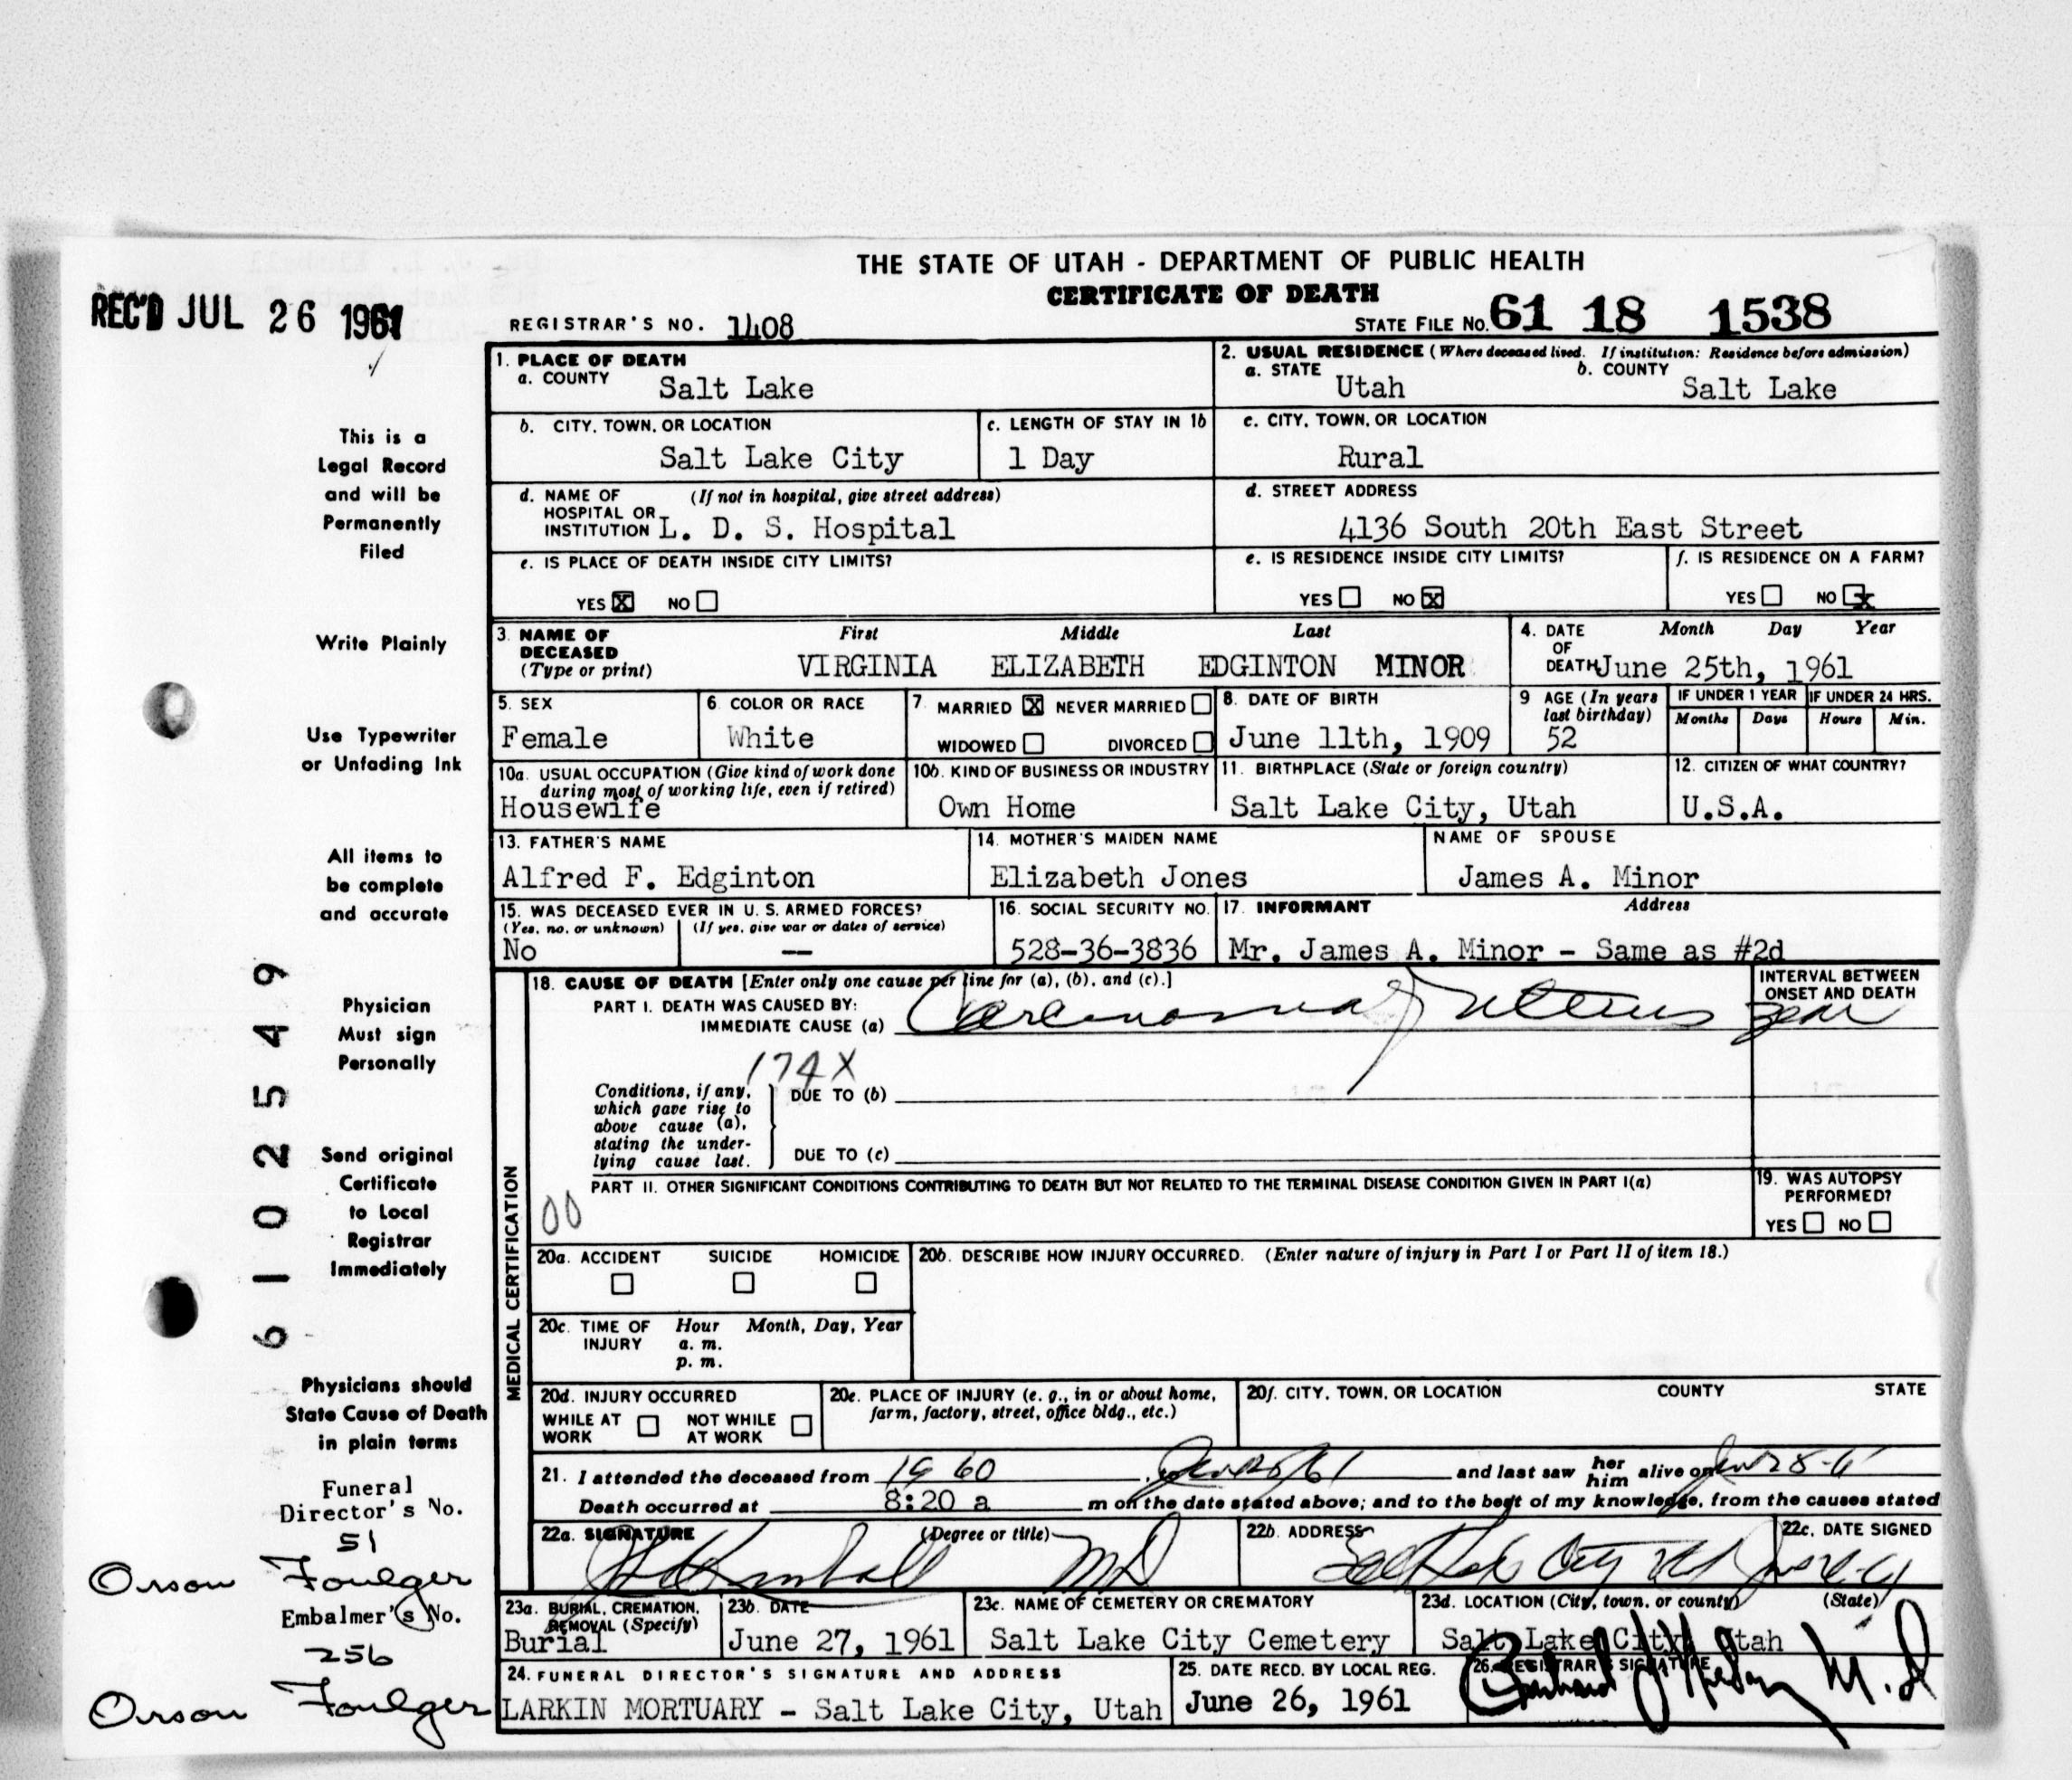 THE STATE OF UTAH - DEPARTMENT OF PUBLIC HEALTH
CERTIFICATE OF DEATH
REC'D JUL 26 1961
REGISTRAR'S NO. 1408
STATE FILE NO. 61 18 1538
1. PLACE OF DEATH
a. COUNTY Salt Lake
2. USUAL RESIDENCE (Where deceased lived. If institution: Residence before admission)
a. STATE Utah b. COUNTY Salt Lake
b. CITY, TOWN, OR LOCATION Salt Lake City
c. LENGTH OF STAY IN 1b 1 Day
c. CITY, TOWN, OR LOCATION Rural
d. NAME OF HOSPITAL OR INSTITUTION (If not in hospital, give street address) L. D. S. Hospital
d. STREET ADDRESS 4136 South 20th East Street
e. IS PLACE OF DEATH INSIDE CITY LIMITS?
YES X NO
e. IS RESIDENCE INSIDE CITY LIMITS?
YES NO X
f. IS RESIDENCE ON A FARM?
YES NO X
3. NAME OF DECEASED (Type or print)
First Middle Last
VIRGINIA ELIZABETH EDGINTON MINOR
4. DATE OF DEATH Month Day Year
June 25th, 1961
5. SEX Female
6. COLOR OR RACE White
7. MARRIED X NEVER MARRIED
WIDOWED DIVORCED
8. DATE OF BIRTH June 11th, 1909
9 AGE (In years last birthday) 52
IF UNDER 1 YEAR Months Days
IF UNDER 24 HRS. Hours Min.
10a. USUAL OCCUPATION (Give kind of work done during most of working life, even if retired) Housewife
10b. KIND OF BUSINESS OR INDUSTRY Own Home
11. BIRTHPLACE (State or foreign country) Salt Lake City, Utah
12. CITIZEN OF WHAT COUNTRY? U.S.A.
13. FATHER'S NAME Alfred F. Edginton
14. MOTHER'S MAIDEN NAME Elizabeth Jones
NAME OF SPOUSE James A. Minor
15. WAS DECEASED EVER IN U. S. ARMED FORCES?
(Yes, no, or unknown) (If yes, give war or dates of service)
No —
16. SOCIAL SECURITY NO. 528-36-3836
17. INFORMANT Address
Mr. James A. Minor - Same as #2d
18. CAUSE OF DEATH [Enter only one cause per line for (a), (b), and (c).]
PART I. DEATH WAS CAUSED BY:
IMMEDIATE CAUSE (a) Carcinoma of uterus
INTERVAL BETWEEN ONSET AND DEATH
year
174X
Conditions, if any, which gave rise to above cause (a), stating the underlying cause last.
DUE TO (b)
DUE TO (c)
PART II. OTHER SIGNIFICANT CONDITIONS CONTRIBUTING TO DEATH BUT NOT RELATED TO THE TERMINAL DISEASE CONDITION GIVEN IN PART I(a)
00
19. WAS AUTOPSY PERFORMED?
YES NO
MEDICAL CERTIFICATION
20a. ACCIDENT SUICIDE HOMICIDE
20b. DESCRIBE HOW INJURY OCCURRED. (Enter nature of injury in Part I or Part II of item 18.)
20c. TIME OF INJURY Hour Month, Day, Year
a. m.
p. m.
20d. INJURY OCCURRED
WHILE AT WORK NOT WHILE AT WORK
20e. PLACE OF INJURY (e. g., in or about home, farm, factory, street, office bldg., etc.)
20f. CITY, TOWN, OR LOCATION COUNTY STATE
21. I attended the deceased from 1960 and last saw her him alive on
Death occurred at 8:20 a m on the date stated above; and to the best of my knowledge, from the causes stated
22a. SIGNATURE (Degree or title)
Kimball MD
22b. ADDRESS
Salt Lake City
22c. DATE SIGNED
23a. BURIAL, CREMATION, REMOVAL (Specify) Burial
23b. DATE June 27, 1961
23c. NAME OF CEMETERY OR CREMATORY Salt Lake City Cemetery
23d. LOCATION (City, town, or county) (State)
Salt Lake City, Utah
24. FUNERAL DIRECTOR'S SIGNATURE AND ADDRESS
LARKIN MORTUARY - Salt Lake City, Utah
25. DATE RECD. BY LOCAL REG.
June 26, 1961
26. REGISTRAR'S SIGNATURE
M.D
This is a
Legal Record
and will be
Permanently
Filed
Write Plainly
Use Typewriter
or Unfading Ink
All items to
be complete
and accurate
Physician
Must sign
Personally
Send original
Certificate
to Local
Registrar
Immediately
Physicians should
State Cause of Death
in plain terms
6 1 0 2 5 4 9
Funeral
Director's No.
51
Orson Foulger
Embalmer's No.
256
Orson Foulger